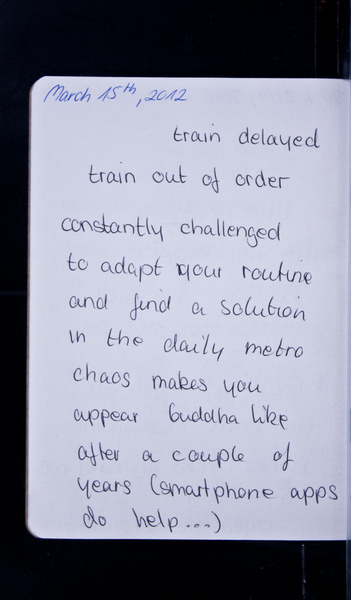 March 15th, 2012
train delayed
train out of order
constantly challenged
to adapt your routine
and find a solution
in the daily metro
chaos makes you
appear buddha like
after a couple of
years (smartphone apps
do help...)